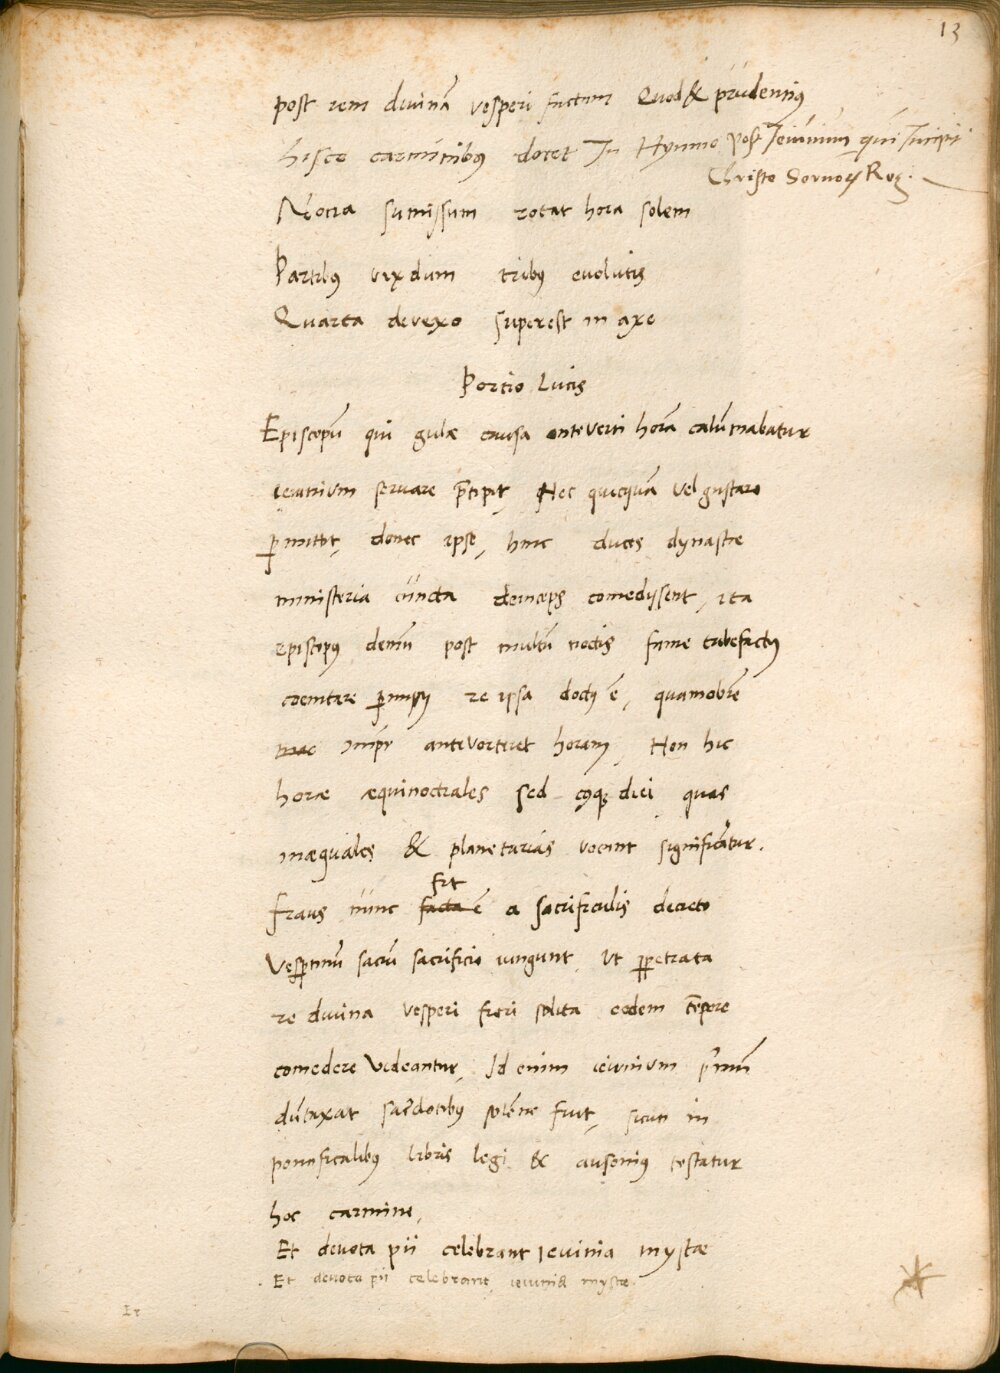 13
post rem diuinā vesperi factum Quod & prudentiꝰ
hisce carminibꝰ docet In Hymno post Ieiunium qui Incipit
Christe Seruoꝝ Reg.
Nona sumissum rotat hora solem
Partibꝰ uix dum tribꝰ euolutis
Quarta devexo superest in axe
Portio Lucis
Episcopū qui gulæ causa anteverti horā calūniabatur
ieiunium seruare p̄cipit, Nec quicquā vel gustare
ꝑmittit, donec ipse, hinc duces dynastæ
ministeria cuncta deinceps comedissent, ita
episcopꝰ demū post multū noctis fame tabefactꝰ
coenitare ꝑmissꝰ re ipsa doctꝰ ē, quamobrē
impr anteverteret horam, Non hic
horæ æquinoctiales sed cuiꝰqꝫ diei quas
inæquales & planetarias vocant significātur.
fit
fraus nunc facta ē a sacrificulis decreto
Vesꝑtinū sacrū sacrificio iungunt, Ut ꝑpetrata
re diuina vesperi fieri solita eodem tēpore
comedere Videantur, Id enim ieiunium p̄mū
dūtaxat sacerdotibꝰ solēne fuit, sicuti in
pontificalibꝰ libris legi & ausoniꝰ testatur
hoc carmine,
Et deuota pii celebrant ieiunia mystæ
Et deuota pii celebrant ieiunia mystæ